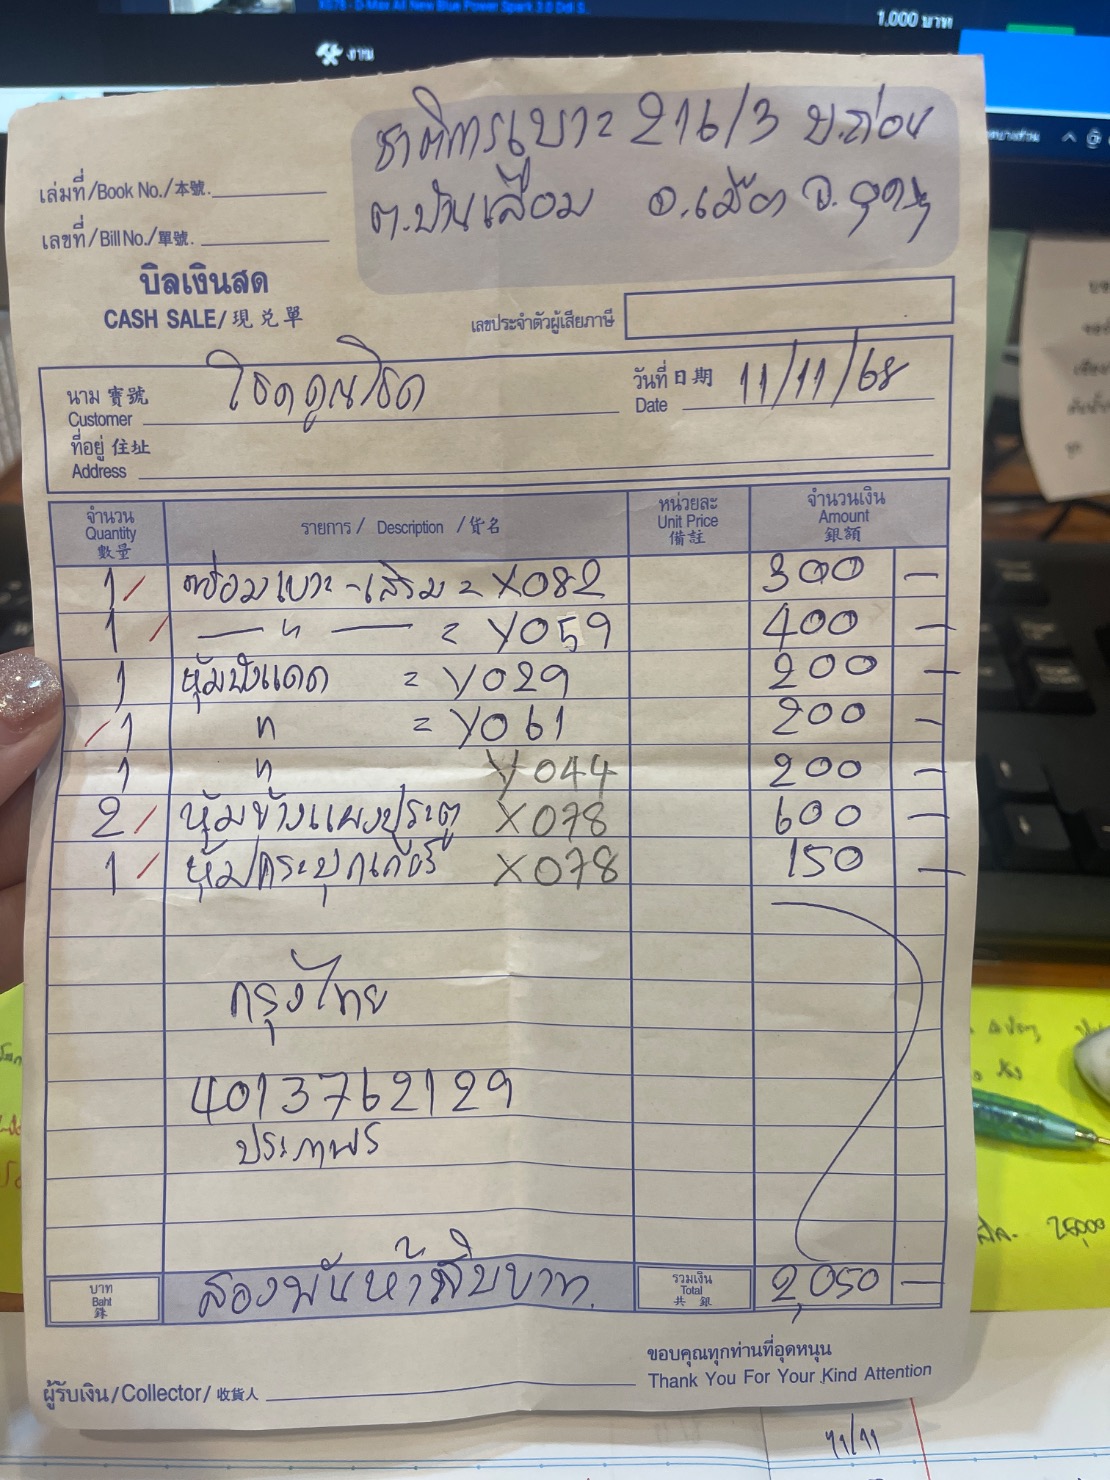 X078 - D-Max All New Blue Power Spark 3.0 Ddi S..
1,000 บาท
งาน
ชาติการเบาะ 216/3 บ.ถ่อน
ต.บ้านเลื่อม อ.เมือง จ.อุดร
เล่มที่/Book No./本號.
เลขที่/Bill No./單號.
บิลเงินสด
CASH SALE/現兌單
เลขประจำตัวผู้เสียภาษี
นาม 寶號 Customer โชคคูณโชค วันที่ 日期 Date 11/11/68
ที่อยู่ 住址 Address
จำนวน Quantity 數量 รายการ / Description / 貨名 หน่วยละ Unit Price 備註 จำนวนเงิน Amount 銀額
1 ซ่อมเบาะ-เสริม = X082 300 —
1 — " — = Y059 400 —
1 หุ้มบังแดด = Y029 200 —
1 " = Y061 200 —
1 " Y044 200 —
2 หุ้มข้างแผงประตู X078 600 —
1 หุ้มกระปุกเกียร์ X078 150 —
กรุงไทย
4013762129
ประภาพร
บาท Baht 銖 สองพันห้าสิบบาท. รวมเงิน Total 共銀 2,050 —
ขอบคุณทุกท่านที่อุดหนุน
Thank You For Your Kind Attention
ผู้รับเงิน/Collector/收貨人
11/11